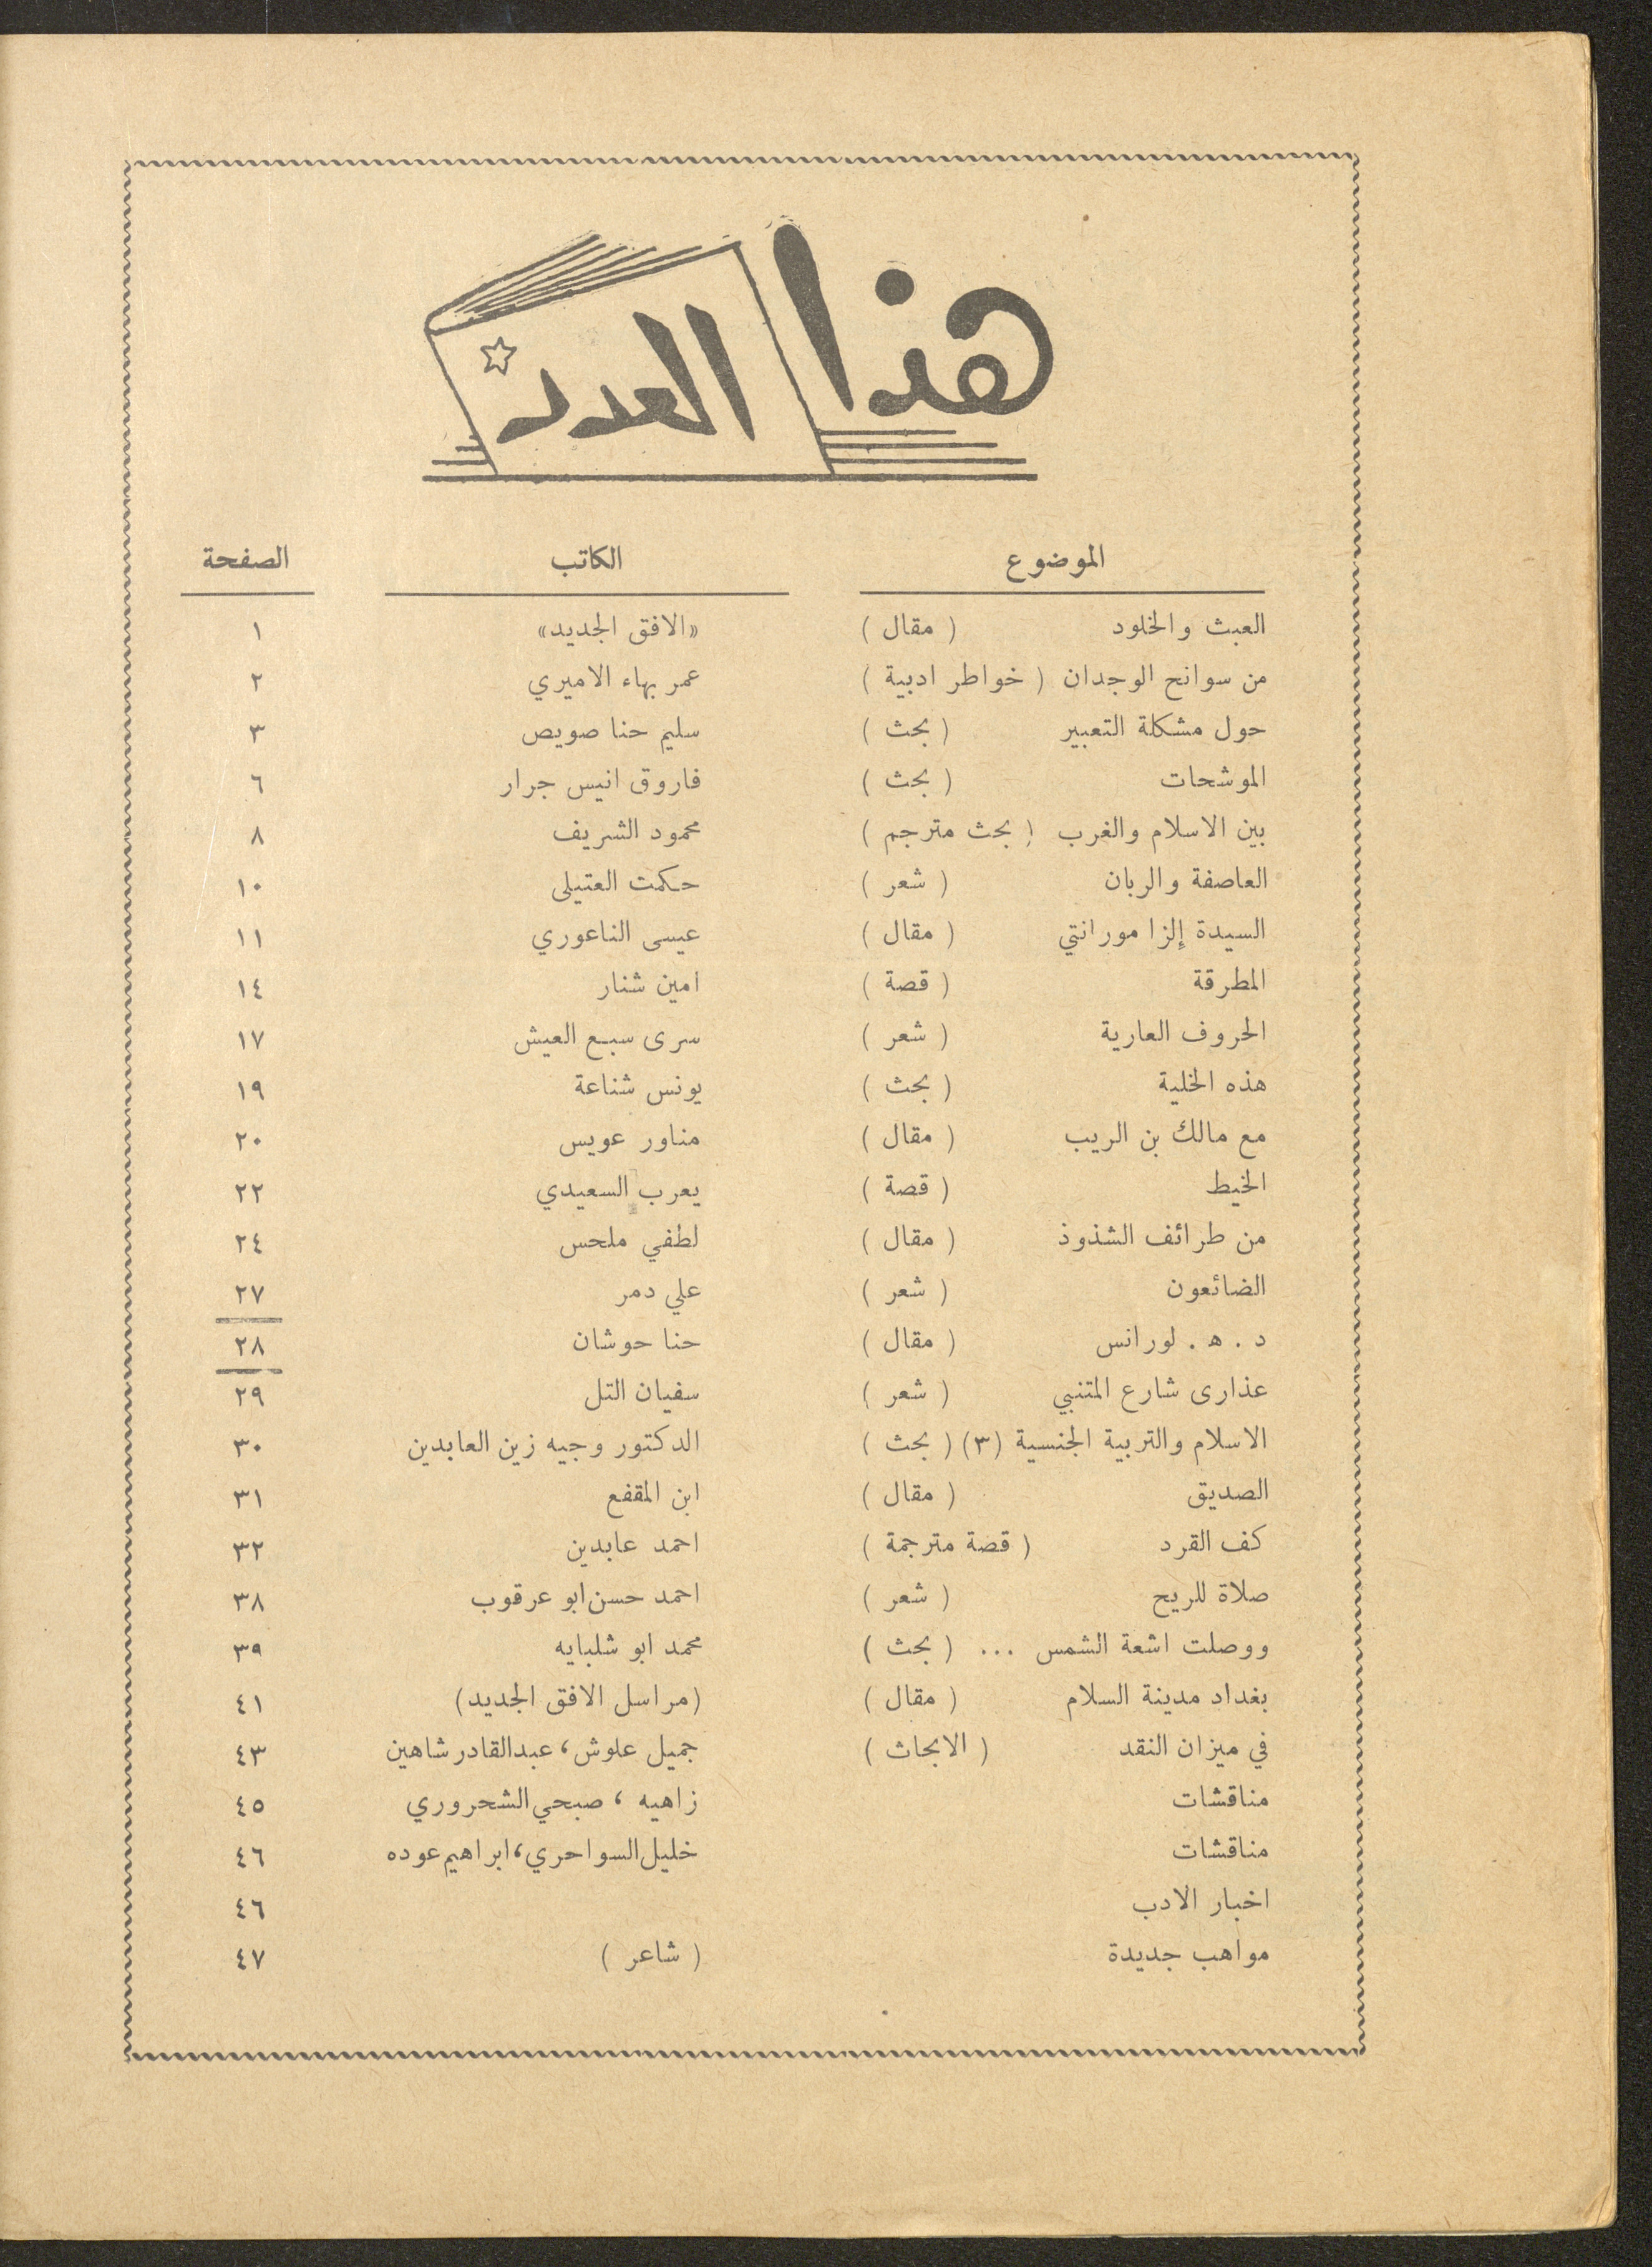 هذا العدد
الموضوع الكاتب الصفحة
العبث والخلود ( مقال ) «الافق الجديد» ١
من سوانح الوجدان ( خواطر ادبية ) عمر بهاء الاميري ٢
حول مشكلة التعبير ( بحث ) سليم حنا صويص ٣
الموشحات ( بحث ) فاروق انيس جرار ٦
بين الاسلام والغرب ( بحث مترجم ) محمود الشريف ٨
العاصفة والربان ( شعر ) حكمت العتيلي ١٠
السيدة إلزا مورانتي ( مقال ) عيسى الناعوري ١١
المطرقة ( قصة ) امين شنار ١٤
الحروف العارية ( شعر ) سرى سبع العيش ١٧
هذه الخلية ( بحث ) يونس شناعة ١٩
مع مالك بن الريب ( مقال ) مناور عويس ٢٠
الخيط ( قصة ) يعرب السعيدي ٢٢
من طرائف الشذوذ ( مقال ) لطفي ملحس ٢٤
الضائعون ( شعر ) علي دمر ٢٧
د . ه . لورانس ( مقال ) حنا حوشان ٢٨
عذارى شارع المتنبي ( شعر ) سفيان التل ٢٩
الاسلام والتربية الجنسية (٣) ( بحث ) الدكتور وجيه زين العابدين ٣٠
الصديق ( مقال ) ابن المقفع ٣١
كف القرد ( قصة مترجمة ) احمد عابدين ٣٢
صلاة للريح ( شعر ) احمد حسن ابو عرقوب ٣٨
ووصلت اشعة الشمس ... ( بحث ) محمد ابو شلبايه ٣٩
بغداد مدينة السلام ( مقال ) (مراسل الافق الجديد) ٤١
في ميزان النقد ( الابحاث ) جميل علوش، عبدالقادر شاهين ٤٣
مناقشات زاهيه ، صبحي الشحروري ٤٥
مناقشات خليل السواحري، ابراهيم عوده ٤٦
اخبار الادب ٤٦
مواهب جديدة ( شاعر ) ٤٧